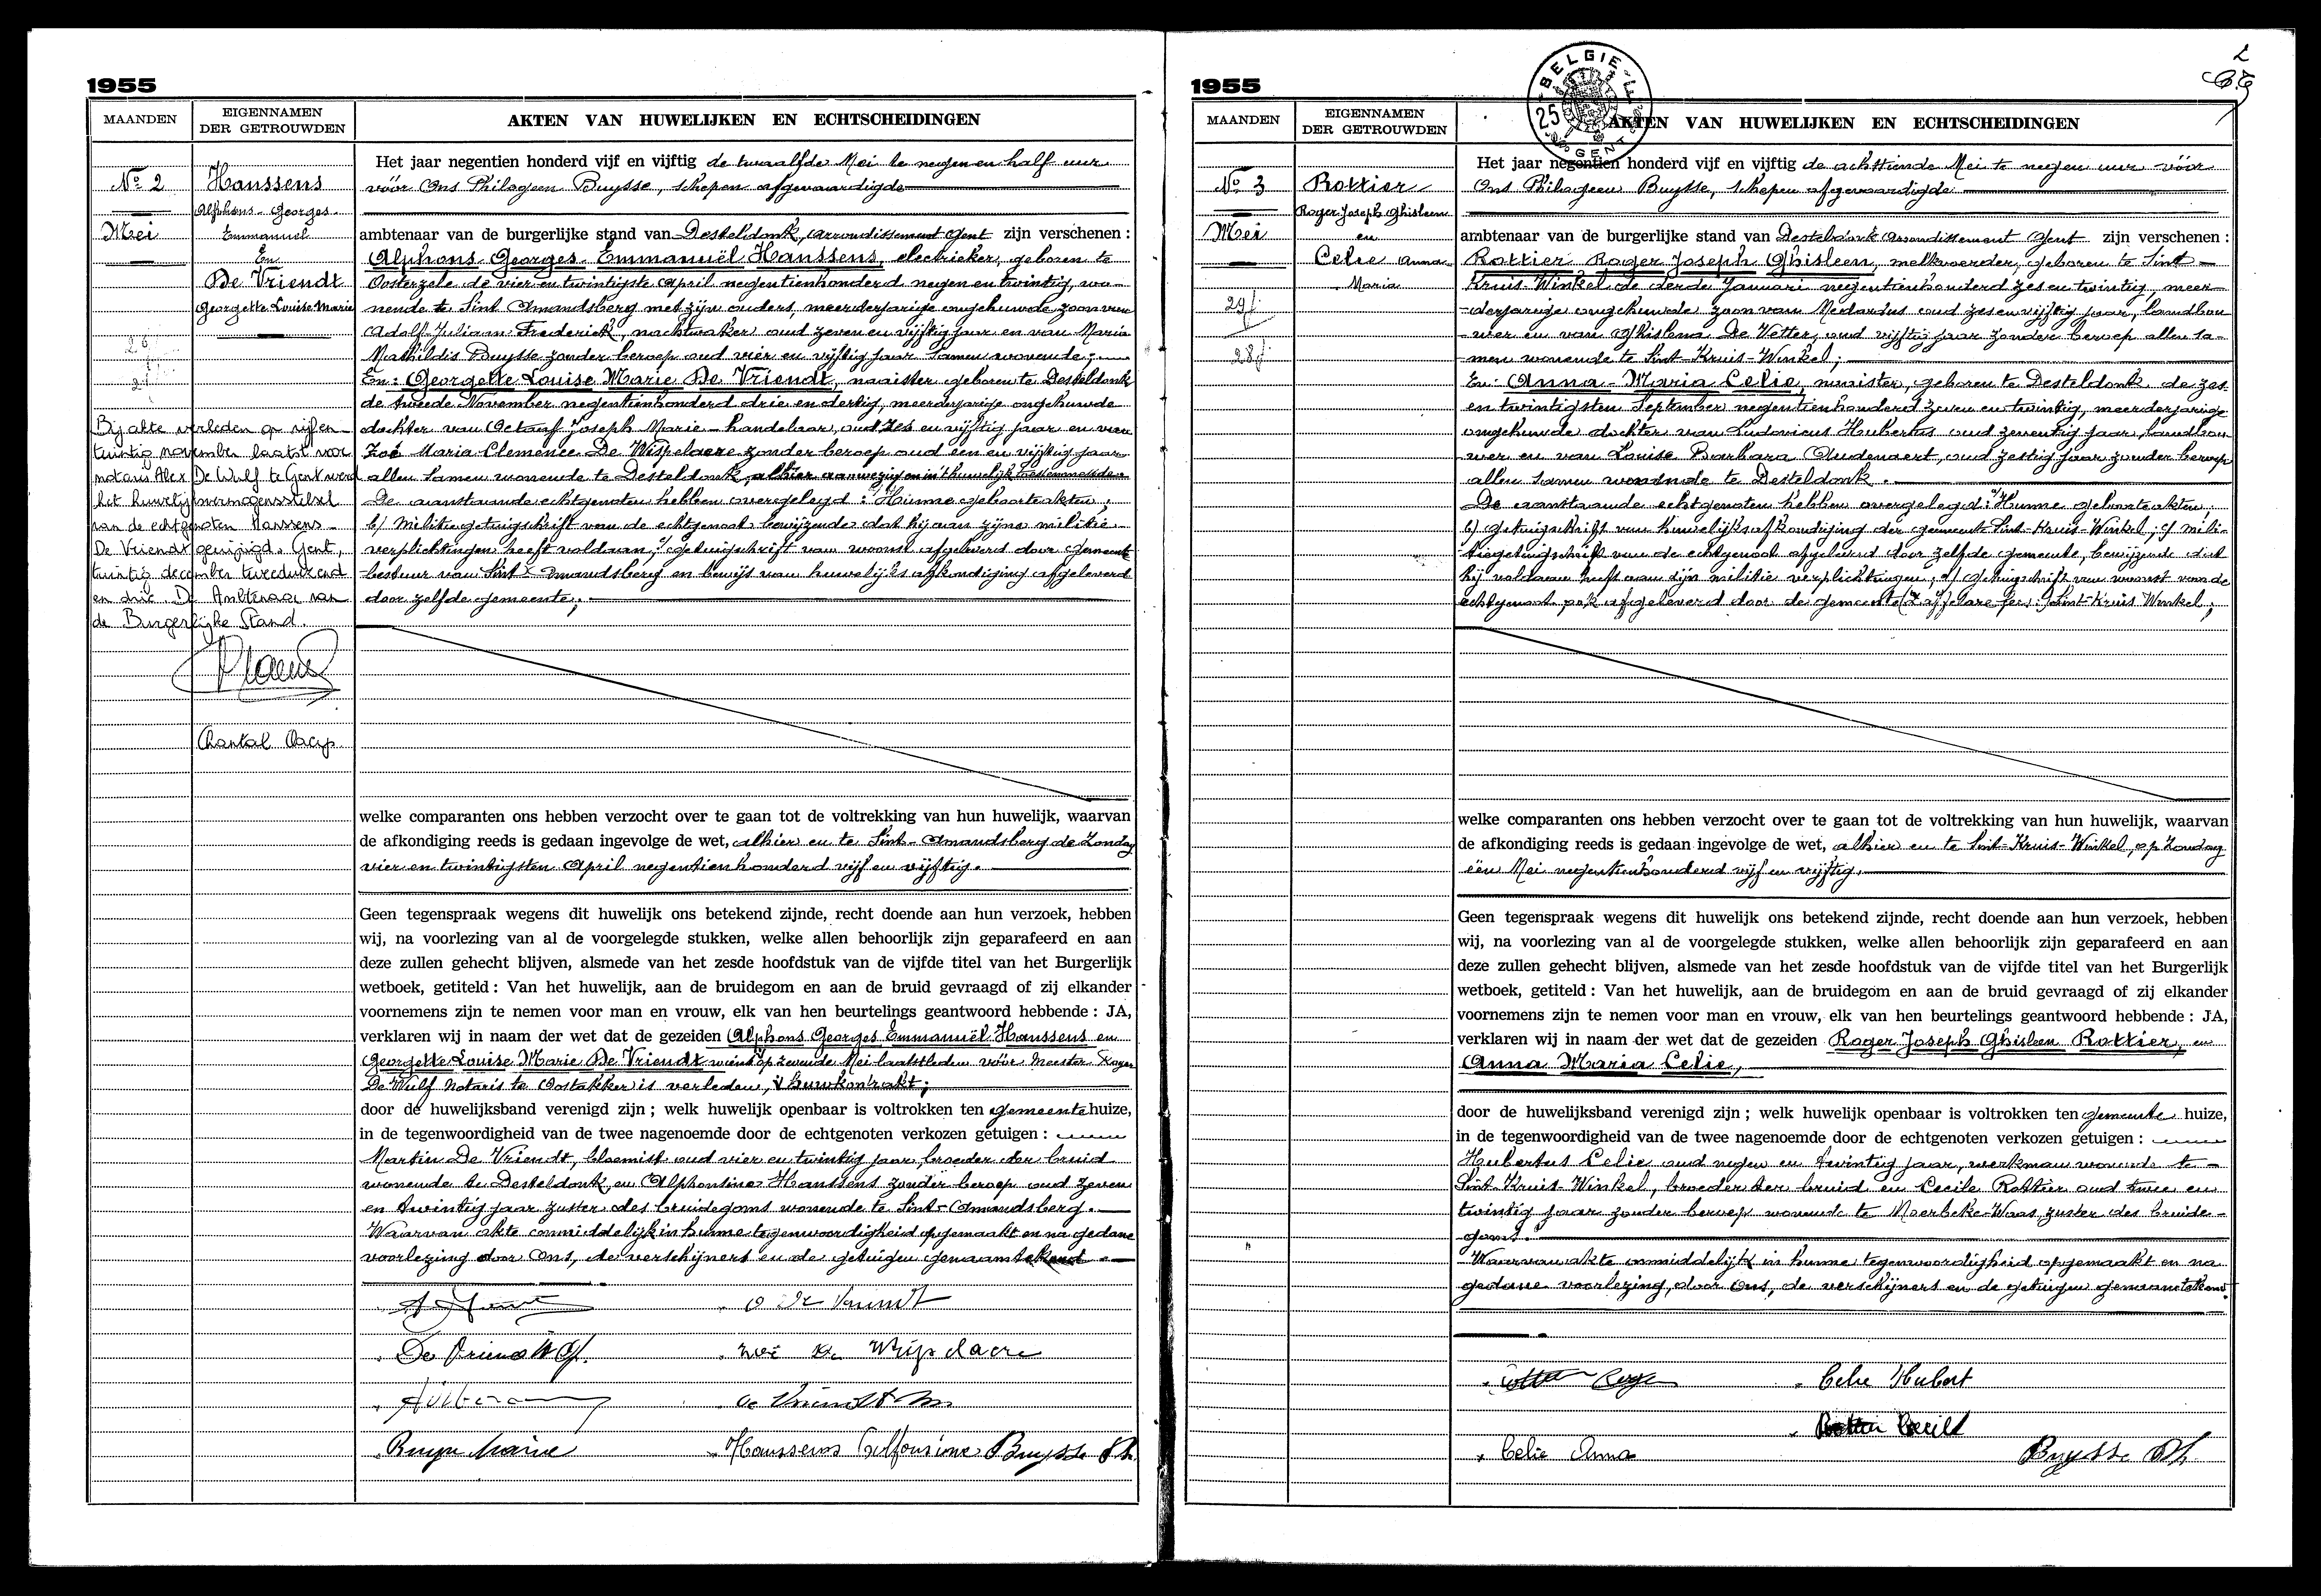 1955
MAANDEN
EIGENNAMEN
DER GETROUWDEN
AKTEN VAN HUWELIJKEN EN ECHTSCHEIDINGEN
No 2
Mei
Hanssens
Alphons-Georges-
Emmanuel
En
De Vriendt
Georgette Louise Marie
Bij akte verleden op vijfen-
twintig november laatst voor
notaris Alex De Wulf te Gent werd
het huwelijksvermogensstelsel
van de echtgenoten Hanssens-
De Vriendt gewijzigd. Gent,
twintig december tweeduizend
en drie. De Ambtenaar van
de Burgerlijke Stand.
Chantal
Het jaar negentien honderd vijf en vijftig de twaalfde Mei te negen en half uur
vóór Ons Philogeen Buysse, schepen afgevaardigde
ambtenaar van de burgerlijke stand van Desteldonk, Arrondissement Gent zijn verschenen :
Alphons Georges Emmanuël Hanssens, electrieker, geboren te
Oosterzele de vier en twintigste April negentienhonderd negen en twintig, wo-
nende te Sint Amandsberg met zijn ouders, meerderjarige ongehuwde zoon van
Adolf Juliaan Frederick, nachtwaker oud zeven en vijftig jaar en van Maria
Mathildis Buysse zonder beroep oud vier en vijftig jaar samen wonende ;
En : Georgette Louise Marie De Vriendt, naaister geboren te Desteldonk
de tweede November negentienhonderd drie en dertig, meerderjarige ongehuwde
dochter van Octaaf Joseph Marie - handelaar, oud zes en vijftig jaar en van
Zoë Maria Clemence De Wispelaere zonder beroep oud een en vijftig jaar
allen samen wonende te Desteldonk, alhier aanwezig en in 't huwelijk toestemmende
De aanstaande echtgenoten hebben overgelegd : Hunne geboorteakten ;
b/ Militiegetuigschrift van de echtgenoot bewijzende dat hij aan zijne militie
verplichtingen heeft voldaan, c/ getuigschrift van woonst afgeleverd door Gemeente
bestuur van Sint Amandsberg en bewijs van huwelijks afkondiging afgeleverd
door zelfde gemeente ;
welke comparanten ons hebben verzocht over te gaan tot de voltrekking van hun huwelijk, waarvan
de afkondiging reeds is gedaan ingevolge de wet, alhier en te Sint-Amandsberg de Zondag
vier en twintigsten April negentienhonderd vijf en vijftig.
Geen tegenspraak wegens dit huwelijk ons betekend zijnde, recht doende aan hun verzoek, hebben
wij, na voorlezing van al de voorgelegde stukken, welke allen behoorlijk zijn geparafeerd en aan
deze zullen gehecht blijven, alsmede van het zesde hoofdstuk van de vijfde titel van het Burgerlijk
wetboek, getiteld : Van het huwelijk, aan de bruidegom en aan de bruid gevraagd of zij elkander
voornemens zijn te nemen voor man en vrouw, elk van hen beurtelings geantwoord hebbende : JA,
verklaren wij in naam der wet dat de gezeiden Alphons Georges Emmanuël Hanssens en
Georgette Louise Marie De Vriendt op zevende Mei laatstleden vóór Meester Roger
De Wulf Notaris te Oostakker is verleden, 't huwkontrakt ;
door de huwelijksband verenigd zijn ; welk huwelijk openbaar is voltrokken ten gemeentehuize,
in de tegenwoordigheid van de twee nagenoemde door de echtgenoten verkozen getuigen :
Martin De Vriendt, bloemist oud vier en twintig jaar, broeder der bruid
wonende te Desteldonk en Alphonsine Hanssens zonder beroep oud zeven
en twintig jaar zuster des bruidegoms wonende te Sint-Amandsberg.
Waarvan akte onmiddelijk in hunne tegenwoordigheid opgemaakt en na gedane
voorlezing door Ons, de verschijners en de getuigen genaamtekend
O De Vriendt
De Vriendt G.
Zoë De Wispelaere
De Vriendt M.
Buysse Marie
Hanssens Alfonsine Buysse Ph.
1955
BELGIE
25
GENT
MAANDEN
EIGENNAMEN
DER GETROUWDEN
AKTEN VAN HUWELIJKEN EN ECHTSCHEIDINGEN
No 3
Mei
Rottier
Roger Joseph Ghisleen
en
Celie Anna-
Maria
Het jaar negentien honderd vijf en vijftig de achttiende Mei te negen uur vóór
Ons Philogeen Buysse, schepen afgevaardigde
ambtenaar van de burgerlijke stand van Desteldonk Arrondissement Gent zijn verschenen :
Rottier Roger Joseph Ghisleen, melkvoerder, geboren te Sint-
Kruis-Winkel de derde Januari negentienhonderd zes en twintig, meer-
-derjarige ongehuwde zoon van Medardus oud zes en vijftig jaar, landbou-
-wer en van Ghislena De Vetter, oud vijftig jaar zonder beroep allen sa-
-men wonende te Sint-Kruis-Winkel ;
En : Anna-Maria Celie, geboren te Desteldonk de zes
en twintigsten September negentienhonderd zeven en twintig, meerderjarige
ongehuwde dochter van Ludovicus Hubertus oud zeventig jaar, landbou-
wer en van Louise Barbara Oudenaert, oud zestig jaar zonder beroep
allen samen wonende te Desteldonk.
De aanstaande echtgenoten hebben overgelegd : Hunne geboorteakten,
b) getuigschrift van huwelijksafkondiging der gemeente Sint-Kruis-Winkel ; c/ mili-
tiegetuigschrift van de echtgenoot afgeleverd door zelfde gemeente, bewijzende dat
hij voldaan heeft aan zijn militie verplichtingen ; d/ getuigschrift van woonst van de
echtgenoot ook afgeleverd door de gemeente Sint-Kruis Winkel ;
welke comparanten ons hebben verzocht over te gaan tot de voltrekking van hun huwelijk, waarvan
de afkondiging reeds is gedaan ingevolge de wet, alhier en te Sint-Kruis-Winkel, op Zondag
één Mei negentienhonderd vijf en vijftig.
Geen tegenspraak wegens dit huwelijk ons betekend zijnde, recht doende aan hun verzoek, hebben
wij, na voorlezing van al de voorgelegde stukken, welke allen behoorlijk zijn geparafeerd en aan
deze zullen gehecht blijven, alsmede van het zesde hoofdstuk van de vijfde titel van het Burgerlijk
wetboek, getiteld : Van het huwelijk, aan de bruidegom en aan de bruid gevraagd of zij elkander
voornemens zijn te nemen voor man en vrouw, elk van hen beurtelings geantwoord hebbende : JA,
verklaren wij in naam der wet dat de gezeiden Roger Joseph Ghisleen Rottier, en
Anna Maria Celie,
door de huwelijksband verenigd zijn ; welk huwelijk openbaar is voltrokken ten gemeente huize,
in de tegenwoordigheid van de twee nagenoemde door de echtgenoten verkozen getuigen :
Hubertus Celie oud negen en twintig jaar, werkman wonende te -
Sint-Kruis-Winkel, broeder der bruid en Cecile Rottier oud twee en
twintig jaar zonder beroep wonende te Moerbeke-Waas, zuster des bruide-
-goms.
Waarvan akte onmiddelijk in hunne tegenwoordigheid opgemaakt en na
gedane voorlezing, door Ons, de verschijners en de getuigen genaamtekend.
Celie Hubert
Rottier Cecile
Celie Anna
Buysse Ph.